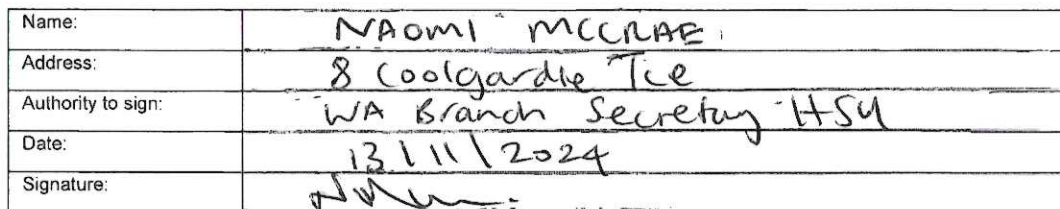 Name: NAOMI MCCRAE
Address: 8 Coolgardie Tce
Authority to sign: WA Branch Secretary HSU
Date: 13/11/2024
Signature: